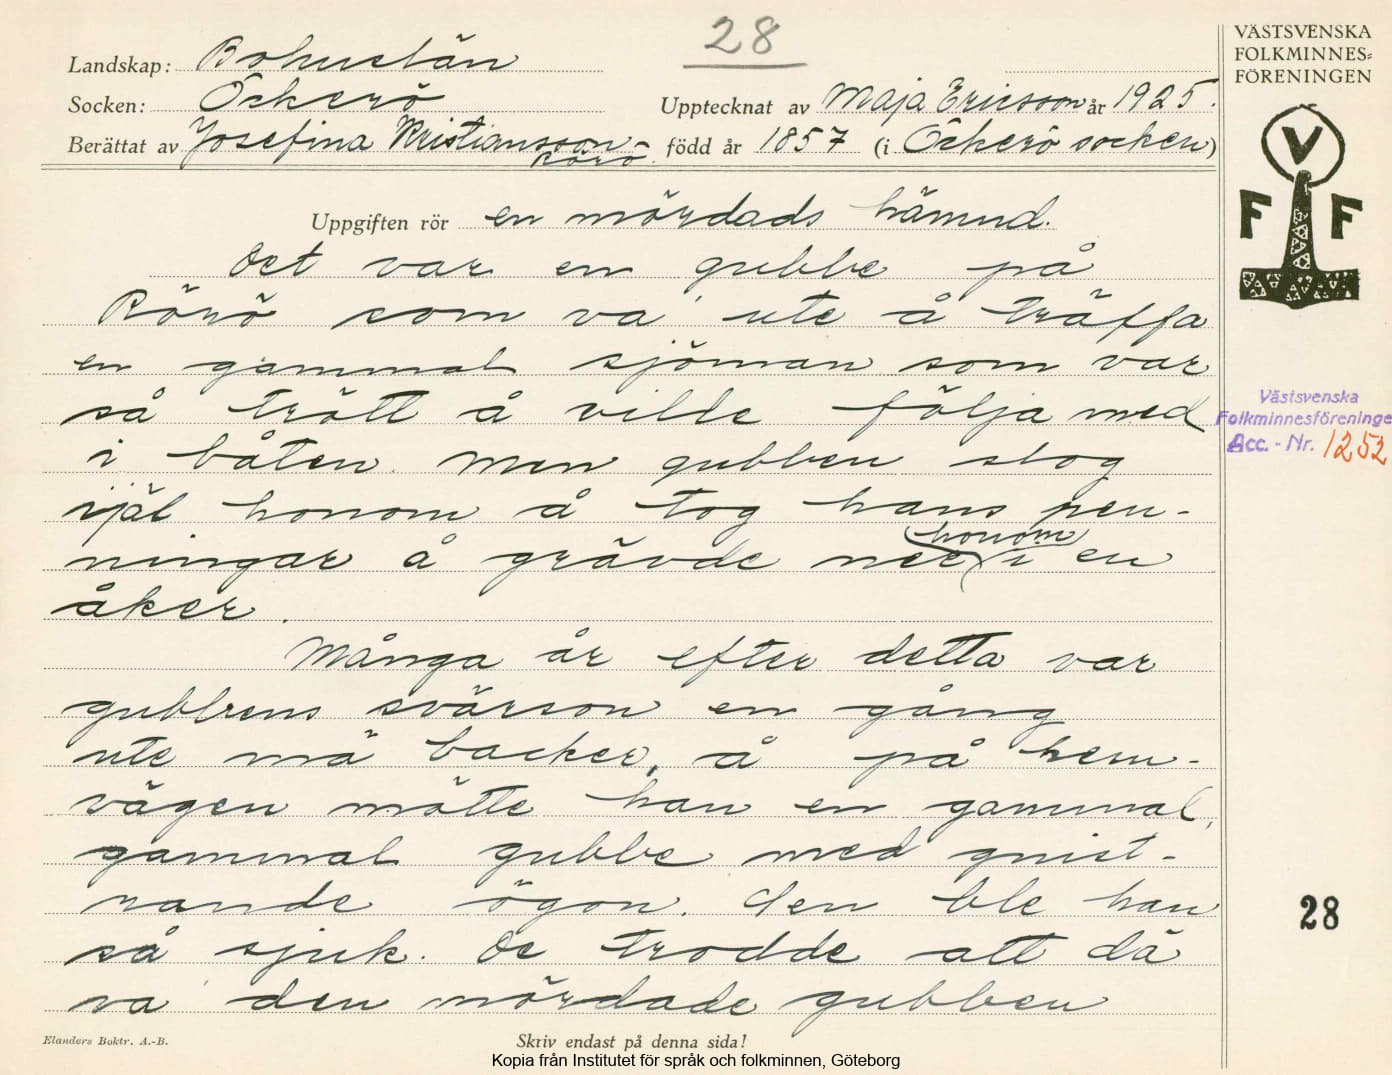 28
Landskap: Bohuslän
Socken: Öckerö
Upptecknat av Maja Ericsson år 1925.
Berättat av Josefina Kristiansson - född år 1857 (i Öckerö socken)
Rörö.
Uppgiften rör en mördads hämnd.
Det var en gubbe på
Rörö som va ute å träffa
en gammal sjöman som var
så trött å ville följa med
i båten. Men gubben slog
ijäl honom å tog hans pen-
ningar å grävde nee honom i en
åker.
Många år efter detta var
gubbens svärson en gång
ute mä backer, å på hem-
vägen mötte han en gammal,
gammal gubbe med gnist-
rande ögon. Den ble han
så sjuk. De trodde att dä
va den mördade gubben
Elanders Boktr. A.-B.
Skriv endast på denna sida!
Kopia från Institutet för språk och folkminnen, Göteborg
VÄSTSVENSKA
FOLKMINNES=
FÖRENINGEN
V
F F
Västsvenska
Folkminnesföreninge
Acc. - Nr. 1252
28